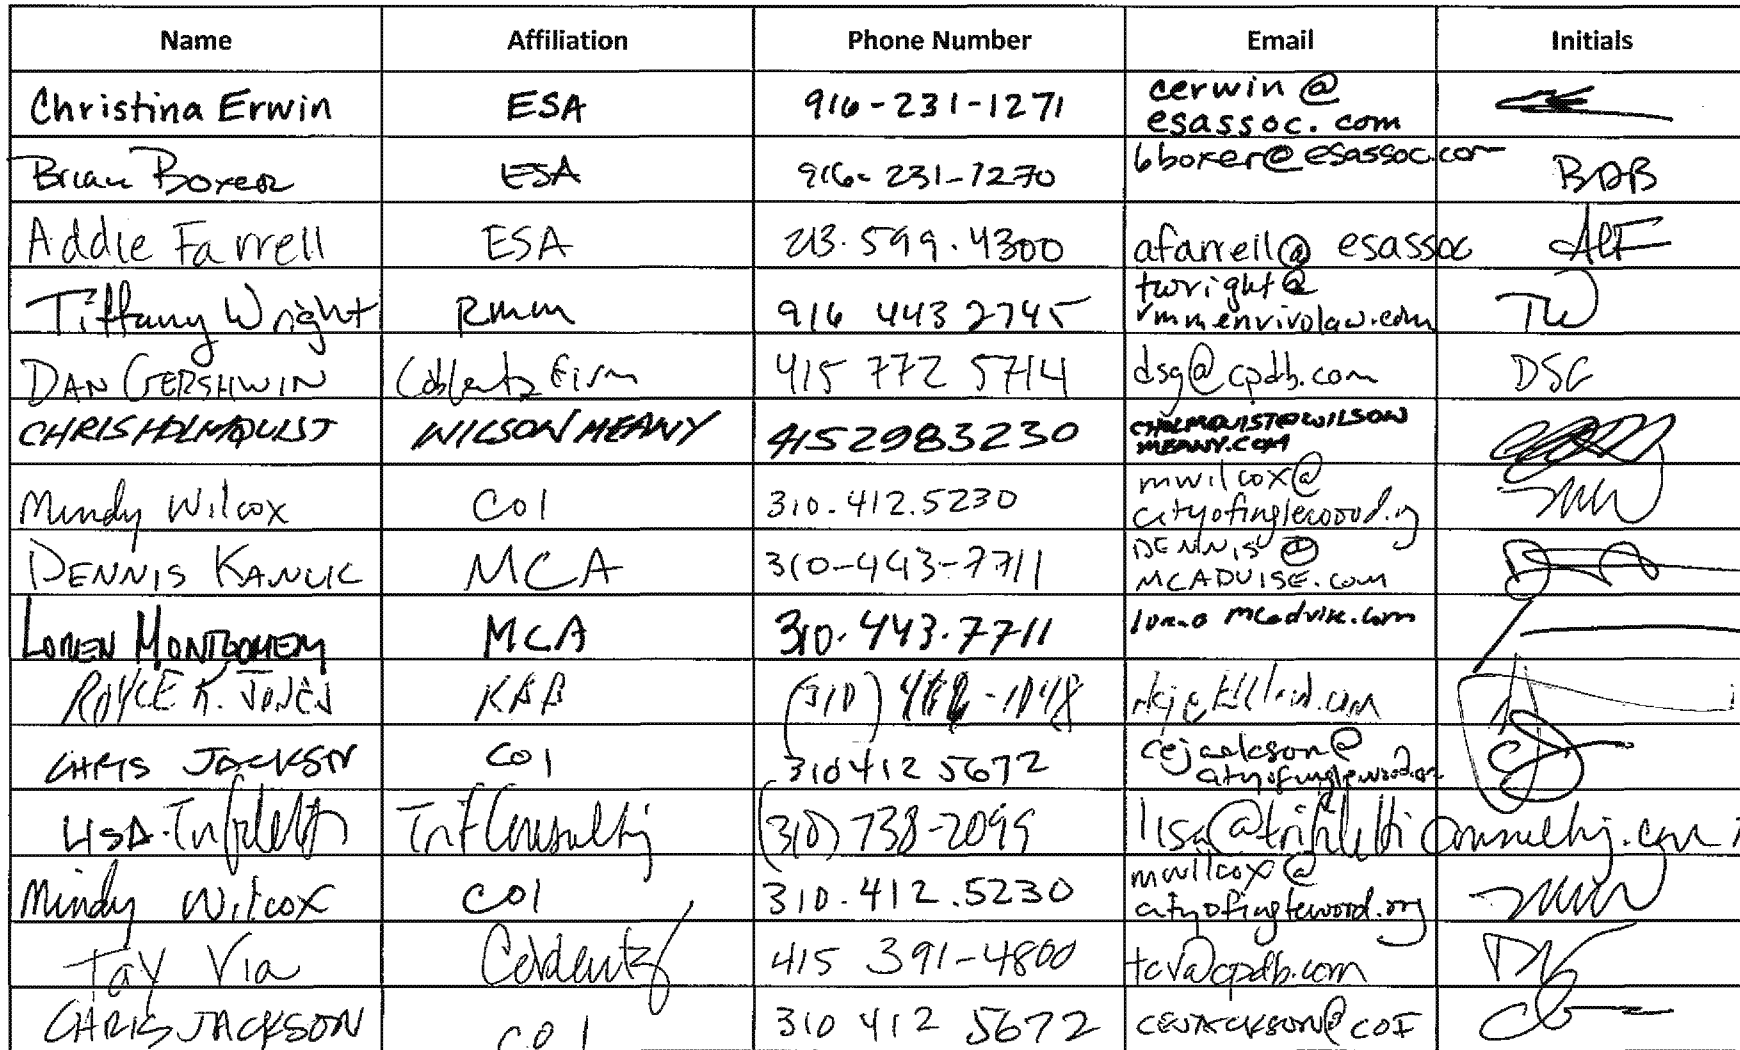 Name Affiliation Phone Number Email Initials
Christina Erwin ESA 916-231-1271 cerwin@
esassoc.com
Brian Boxer ESA 916-231-1270 bboxer@esassoc.com BDB
Addie Farrell ESA 213.599.4300 afarrell@esassoc ALF
Tiffany Wright RMM 916 443 2745 twright@ TW
rmmenvirolaw.com
DAN GERSHWIN Coblentz firm 415 772 5714 dsg@cpdb.com DSG
CHRIS HOLMQUIST WILSON MEANY 4152983230 CHOLMQUIST@WILSON
MEANY.COM
Mindy Wilcox COI 310.412.5230 mwilcox@ MW
cityofinglewood.org
DENNIS KANUK MCA 310-443-7711 DENNIS@
MCADVISE.com
LOREN MONTGOMERY MCA 310.443.7711 mcadvise.com
ROYCE K. JONES (310)
CHRIS JACKSON COI 310 412 5672 cejackson@ CJ
cityofinglewood.org
LISA Trifiletti Trif Consulting (310) 738-2099 lisa@trifiletticonsulting.com
Mindy Wilcox COI 310.412.5230 mwilcox@ MW
cityofinglewood.org
Tay Via Coblentz 415 391-4800 tcv@cpdb.com
CHRIS JACKSON COI 310 412 5672 CEJACKSON@COI